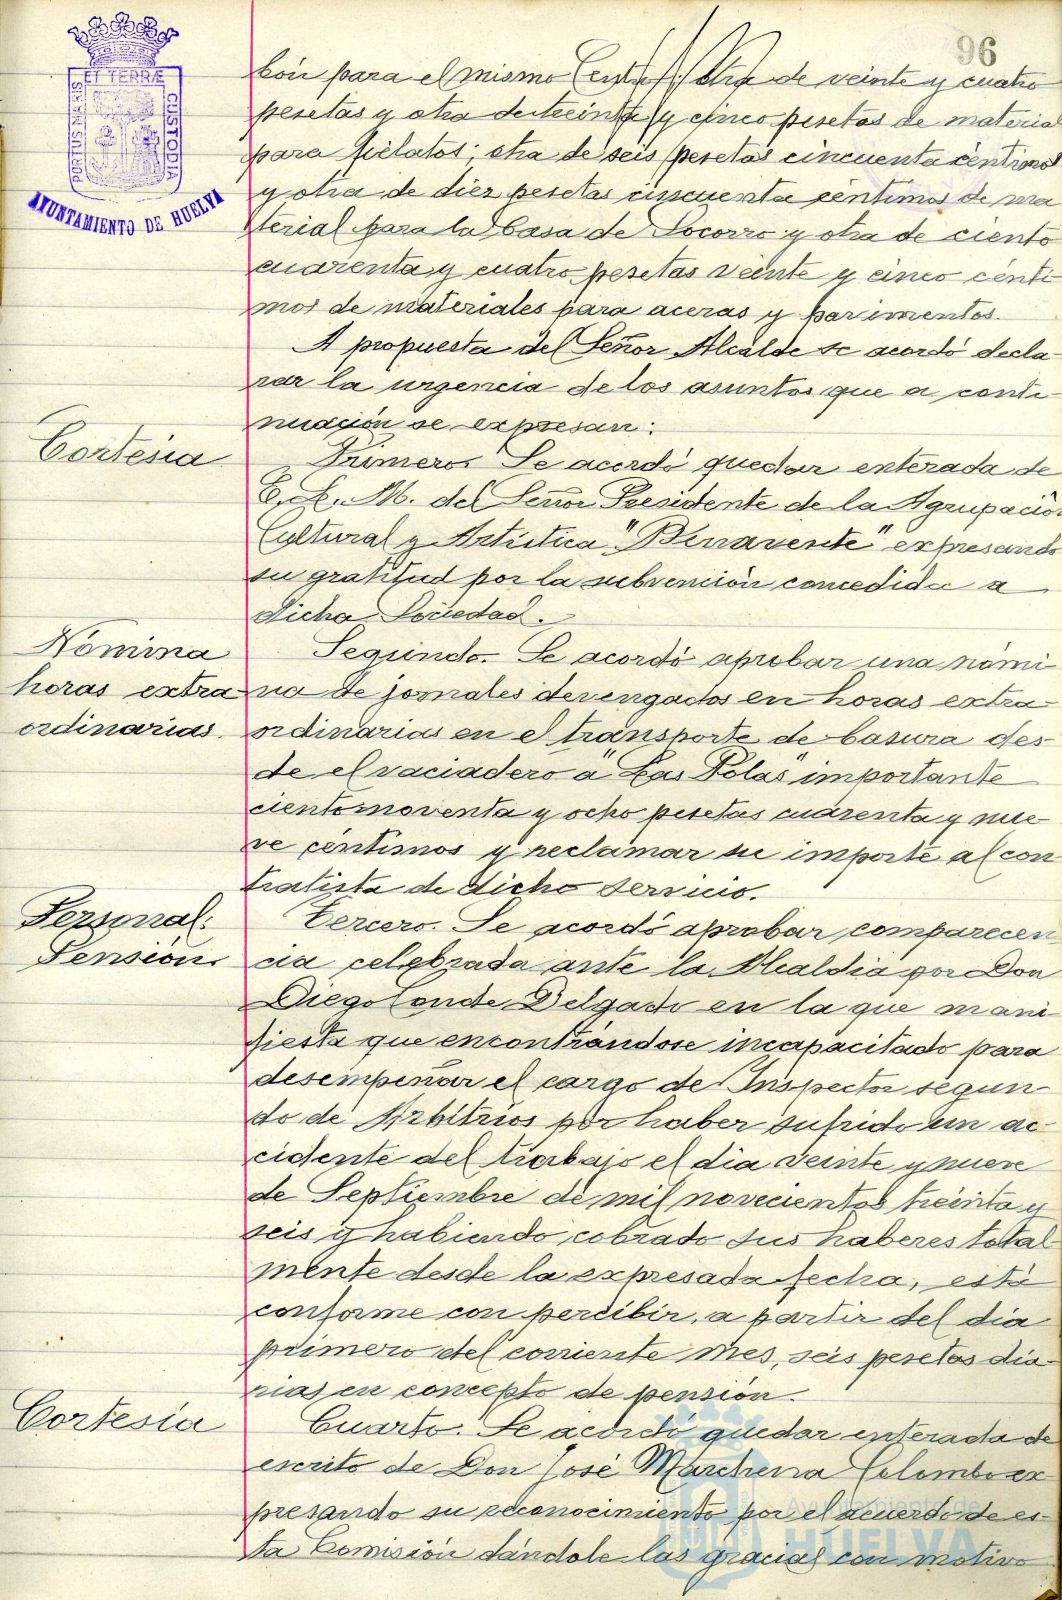 96
PORTUS MARIS ET TERRÆ CUSTODIA
AYUNTAMIENTO DE HUELVA
bón para el mismo Centro; otra de veinte y cuatro
pesetas y otra de treinta y cinco pesetas de material
para pelotas; otra de seis pesetas cincuenta céntimos
y otra de diez pesetas cincuenta céntimos de ma
terial para la Casa de Socorro y otra de ciento
cuarenta y cuatro pesetas veinte y cinco cénti
mos de materiales para aceras y pavimentos.
A propuesta del Señor Alcalde se acordó decla-
rar la urgencia de los asuntos que a conti-
nuación se expresan:
Cortesia
Primero. Se acordó quedar enterada de
B. L. M. del Señor Presidente de la Agrupación
Cultural y Artística "Benavente" expresando
su gratitud por la subvención concedida a
dicha Sociedad.
Nómina
horas extra
ordinarias.
Segundo. Se acordó aprobar una nómi
na de jornales devengados en horas extra-
ordinarias en el transporte de basura des-
de el vaciadero a "Las Polas" importante
ciento noventa y ocho pesetas cuarenta y nue
ve céntimos y reclamar su importe al con
tratista de dicho servicio.
Personal:
Pensión.
Tercero. Se acordó aprobar comparecen
cia celebrada ante la Alcaldia por Don
Diego Conde Delgado en la que mani-
fiesta que encontrándose incapacitado para
desempeñar el cargo de Inspector segun-
do de Arbitrios por haber sufrido un ac-
cidente del trabajo el dia veinte y nueve
de Septiembre de mil novecientos treinta y
seis y habiendo cobrado sus haberes total-
mente desde la expresada fecha, está
conforme con percibir, a partir del dia
primero del corriente mes, seis pesetas dia-
rias en concepto de pensión.
Cortesía
Cuarto. Se acordó quedar enterada de
escrito de Don José Marchena Colombo ex
presando su reconocimiento por el acuerdo de es-
ta Comisión dándole las gracias con motivo
Ayuntamiento de
HUELVA